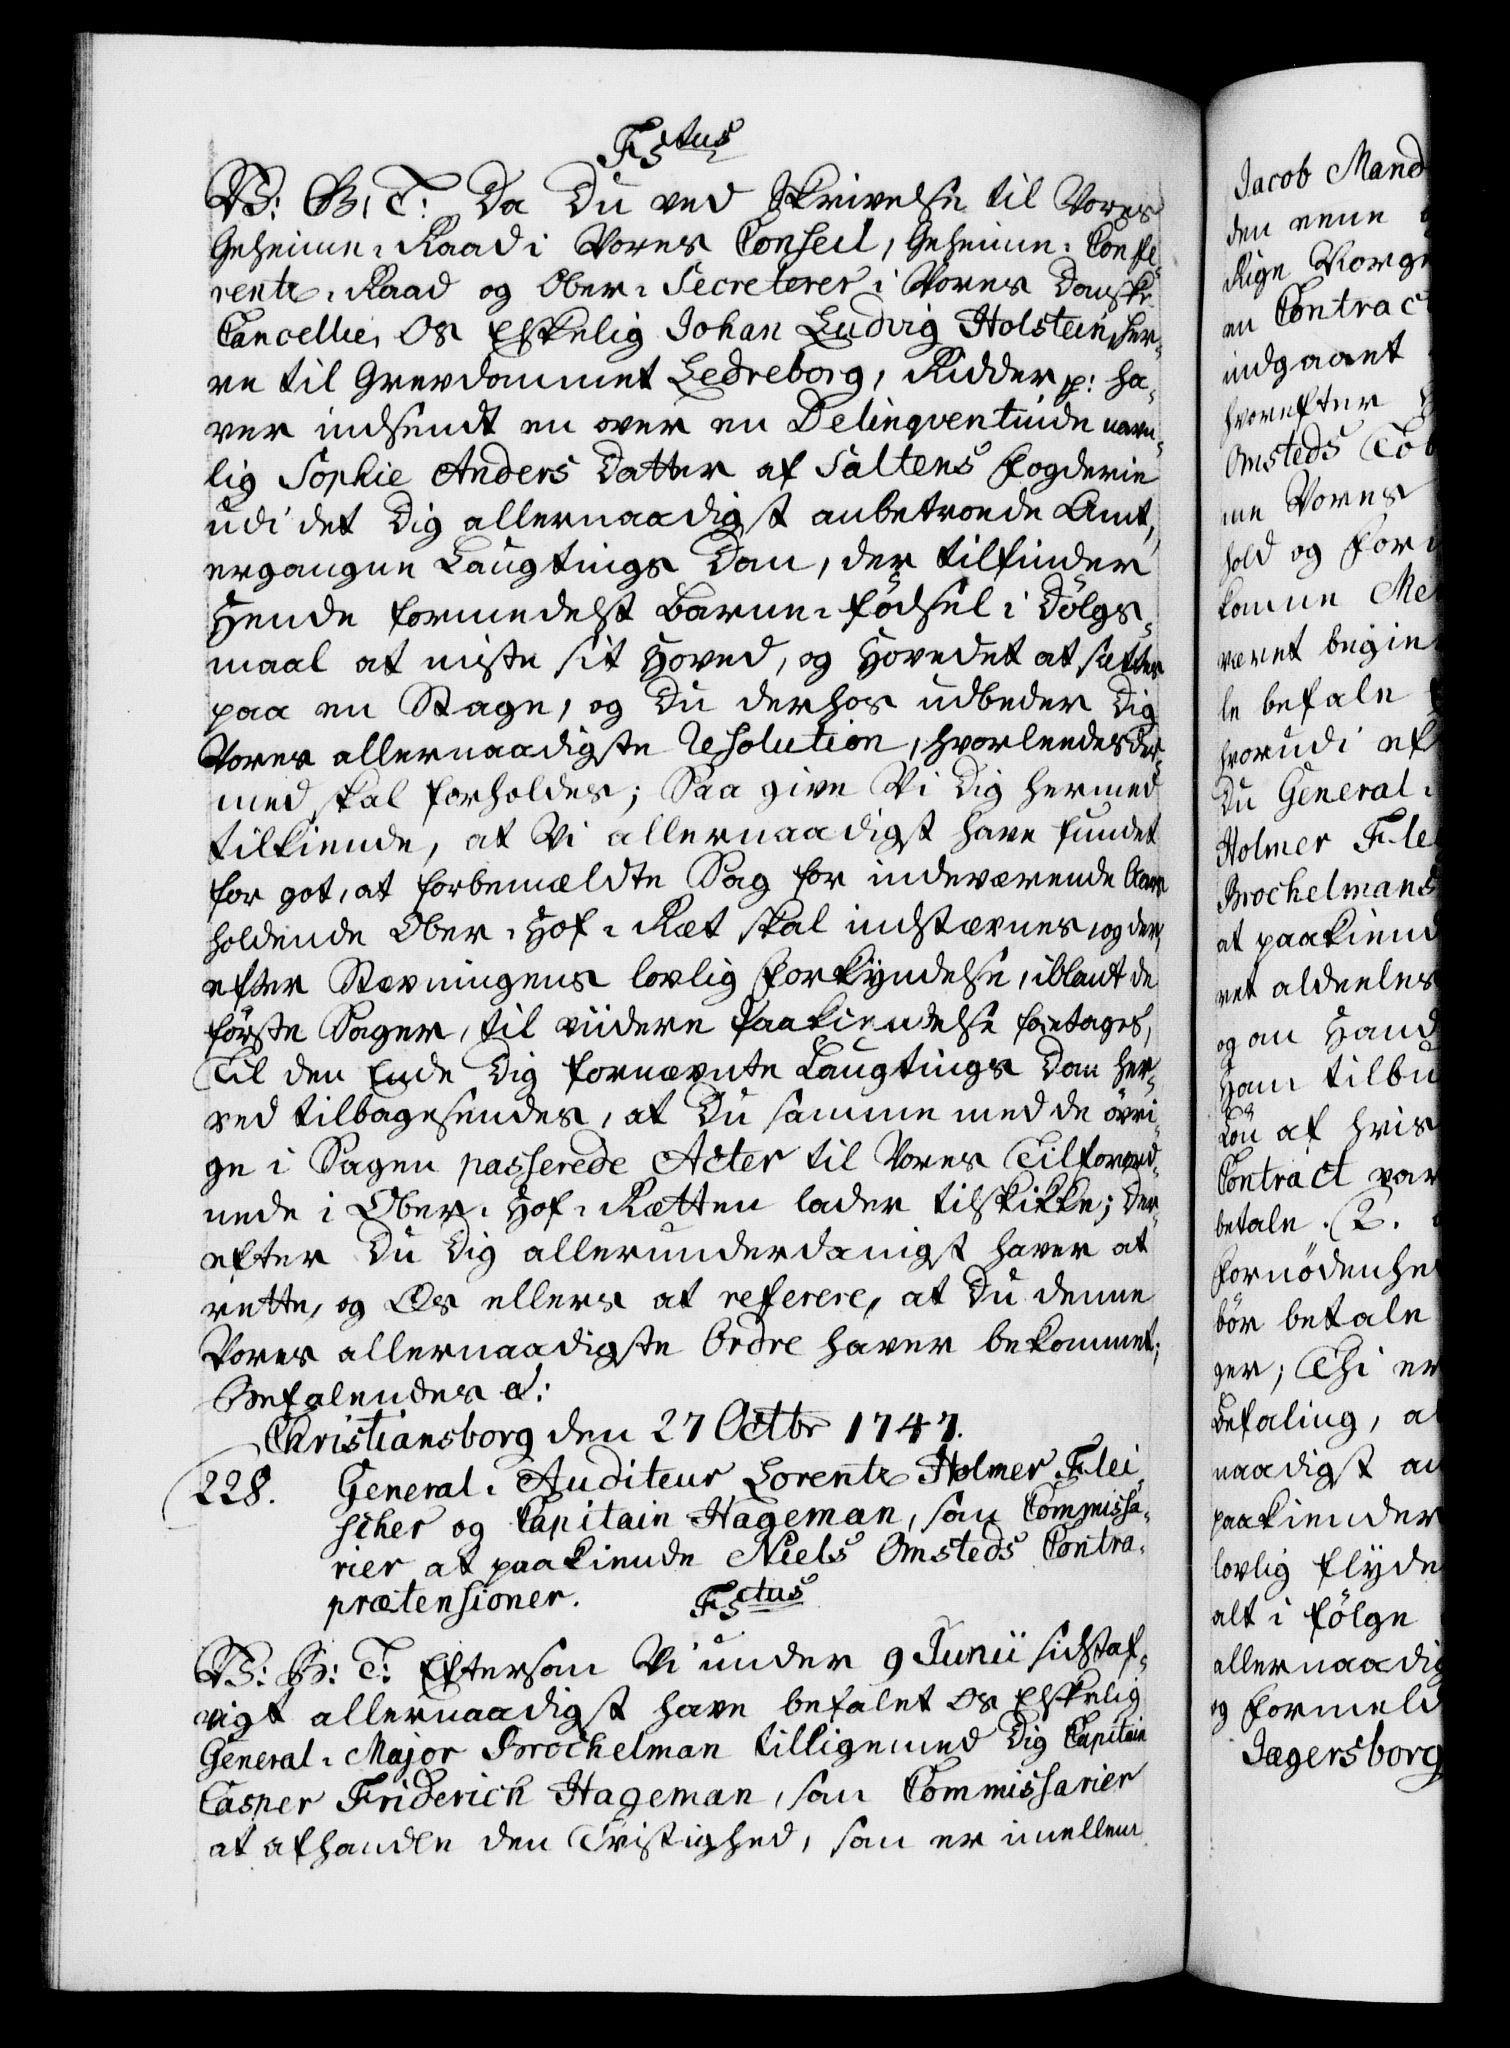 F5tus
V: G: T: Da Du ved Skrivelse til Vores
Geheime-Raad i Vores Conseil, Geheime-Confe-
rentz-Raad og Ober-Secreterer i Vores Danske
Cancellie, Os Elskelig Johan Ludvig Holstein, Her-
re til Grevdommet Ledreborg, Ridder p: ha-
ver indsendt en over en Delinqventinde navn-
lig Sophie Anders Datter af Saltens Fogderie
udi det Dig allernaadigst anbetroede Amt,
ergangne Laugtings Dom, der tilfinder
Hende formedelst Barne-Födsel i Dölgs-
maal at miste sit Hoved, og Hovedet at sættes
paa en Stage, og Du derhos udbeder Dig
Vores allernaadigste Resolution, hvorleedes der-
med skal forholdes; Saa give Vi Dig hermed
tilkiende, at Vi allernaadigst have fundet
for got, at forbemældte Sag for indeværende Aars
holdende Ober-Hof-Ræt skal indstævnes, og der,
efter Stævningens lovlig Forkyndelse, iblant de
förste Sager, til viidere Paakiendelse foretages,
Til den Ende Dig fornævnte Laugtings Dom her-
ved tilbagesendes, at Du samme med de övri-
ge i Sagen passerede Acter til Vores Tilforord-
nede i Ober-Hof-Rætten lader tilskikke; Der-
efter Du Dig allerunderdanigst haver at
rette, og Os ellers at referere, at Du denne
Vores allernaadigste Ordre haver bekommet;
Befalendes a:
Christiansborg den 27 Octbr 1747.
228. General-Auditeur Lorentz Holmer Flei-
scher og Capitain Hageman, som Commissa-
rier at paakiende Niels Omsteds Contra-
prætensioner. F5ctus
V: G: T: Eftersom Vi under 9 Junii sidstaf-
vigt allernaadigst have befalet Os Elskelig
General-Major Brochelman tilligemed Dig Capitain
Casper Friderich Hageman, som Commissarier
at afhandle den Tvistighed, som er imellem
Jacob Mand
den eene
Rige Norge
en Contract
indgaaet
hvorefter
Omsteds Tob
me Vores
hold og For
komme Me
været begie
le befale
hvorudi ef
Du General-
Holmer Fle
Brochelmans
at paakiend
ret aldeeles
og om Hand
Ham tilbu
Lön af hvis
Contract var
betale. 2.
Fornödenhe
bör betale
ger; Thi er
Befaling, at
naadigst an
paakiender
lovlig flyde
alt i fölge
allernaadig
og formeld
Jægersborg